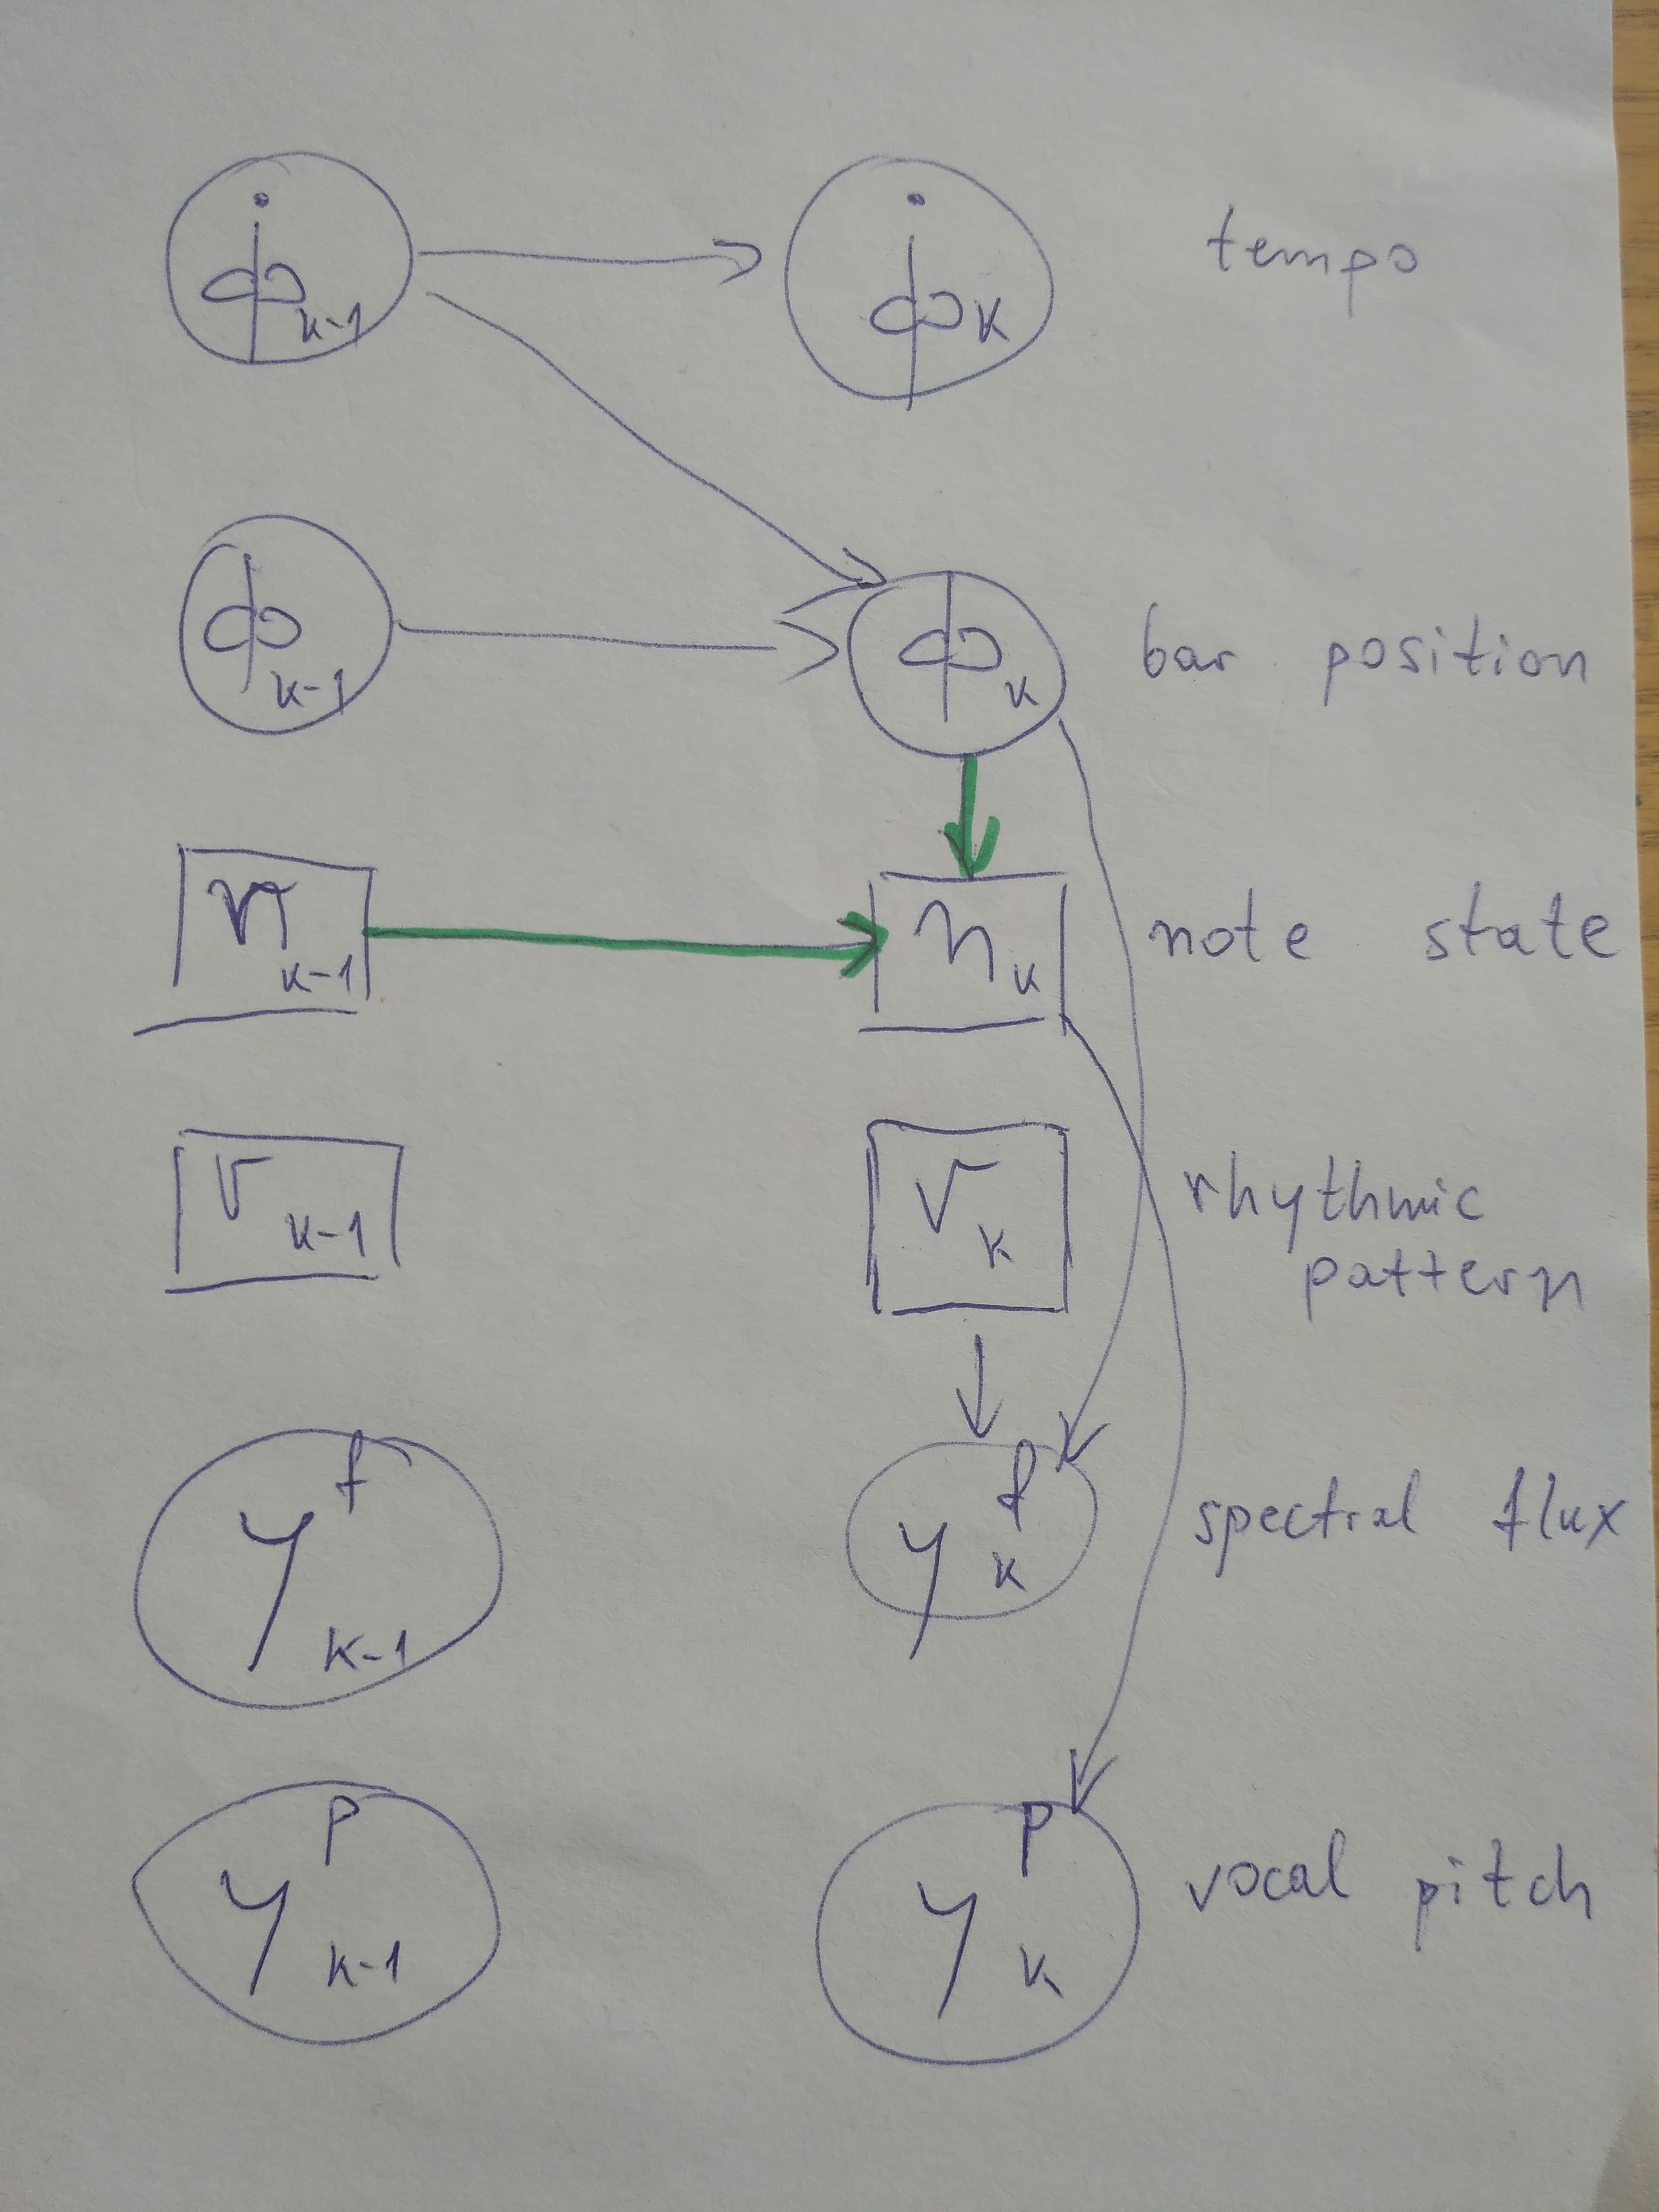 ϕ̇ k-1 ϕ̇ k tempo
ϕ k-1 ϕ k bar position
n k-1 n k note state
r k-1 r k rhythmic
pattern
y f k-1 y f k spectral flux
y p k-1 y p k vocal pitch